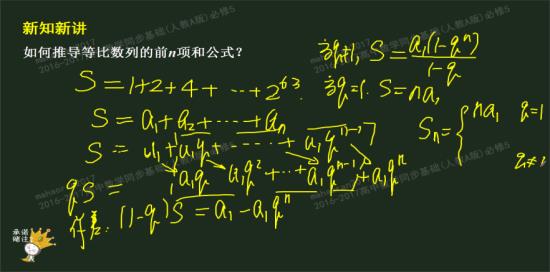 新知新讲
如何推导等比数列的前n项和公式？
S=1+2+4+…+2^63
S=a₁+a₂+……+aₙ
S=a₁+a₁q+……+a₁qⁿ⁻¹
qS= a₁q+a₁q²+…+a₁qⁿ⁻¹+a₁qⁿ
作差：(1-q)S=a₁-a₁qⁿ
当q≠1, S=a₁(1-qⁿ)/(1-q)
当q=1. S=na₁
Sₙ={ na₁ q=1
q≠
2016-2017高中数学同步基础(人教A版)必修5
承诺
赌注